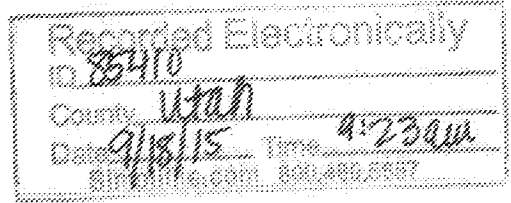 Recorded Electronically
ID 85410
County Utah
Date 9/18/15 Time 9:23am